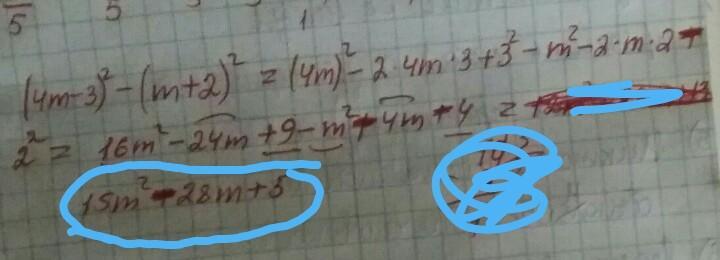 5 1
(4m-3)² - (m+2)² = (4m)² - 2·4m·3 + 3² - m² - 2·m·2 -
2² = 16m² - 24m + 9 - m² - 4m - 4 =
15m² - 28m + 5